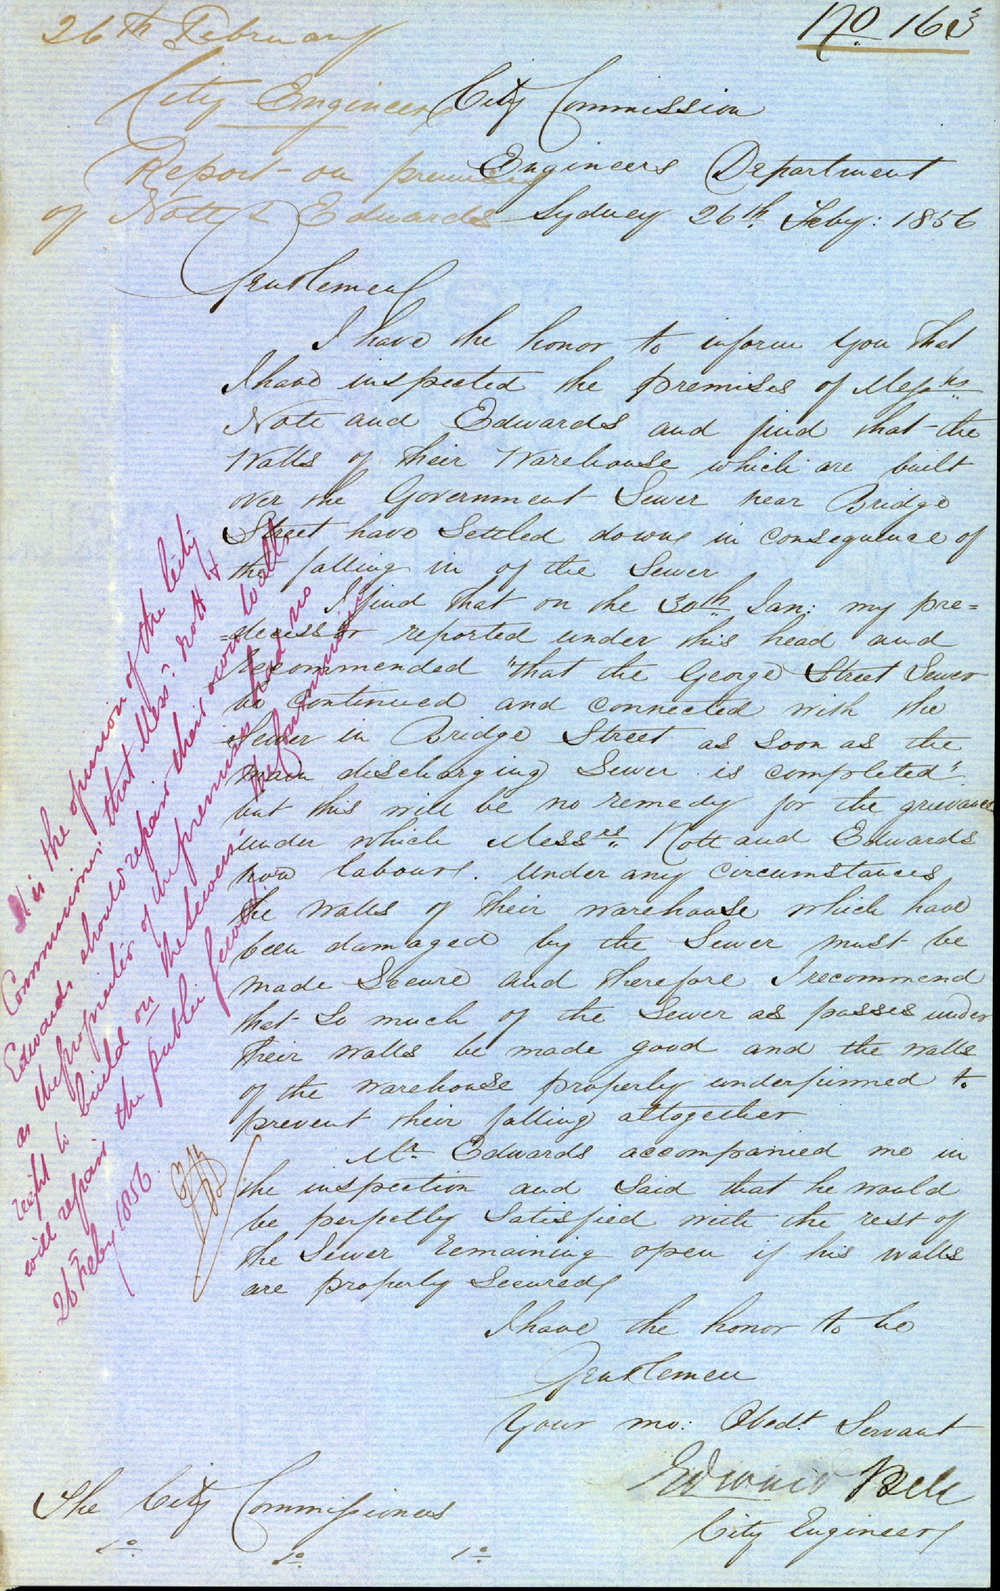 No 163
26th February
City Engineer
Report on premises
of Nott & Edwards
City Commission
Engineers Department
Sydney 26th Feby: 1856
Gentlemen
I have the honor to inform you that
I have inspected the premises of Messrs
Note and Edwards and find that the
Walls of their Warehouse which are built
over the Government Sewer near Bridge
Street have Settled down in consequence of
the falling in of the Sewer
I find that on the 30th Jan: my pre=
=decessor reported under this head and
recommended "that the George Street Sewer
be continued and connected with the
Sewer in Bridge Street as soon as the
main discharging Sewer is completed"
but this will be no remedy for the grievance
under which Messrs Nott and Edwards
now labour. Under any circumstances
the walls of their warehouse which have
been damaged by the Sewer must be
made Secure and therefore I recommend
that So much of the Sewer as passes under
their walls be made good and the walls
of the warehouse properly underpinned to
prevent their falling altogether
Mr Edwards accompanied me in
the inspection and Said that he would
be perfectly Satisfied with the rest of
the Sewer remaining open if his walls
are properly Secured
I have the honor to be
Gentlemen
Your mo: Obedt Servant
Edward Bell
City Engineer
The City Commissioners
It is the opinion of the City
Commissioners that Messrs Nott &
Edwards should repair their own walls
as the proprietor of the premises had no
right to build on the Sewers, the Government
will repair the public Sewer
26 Feby 1856